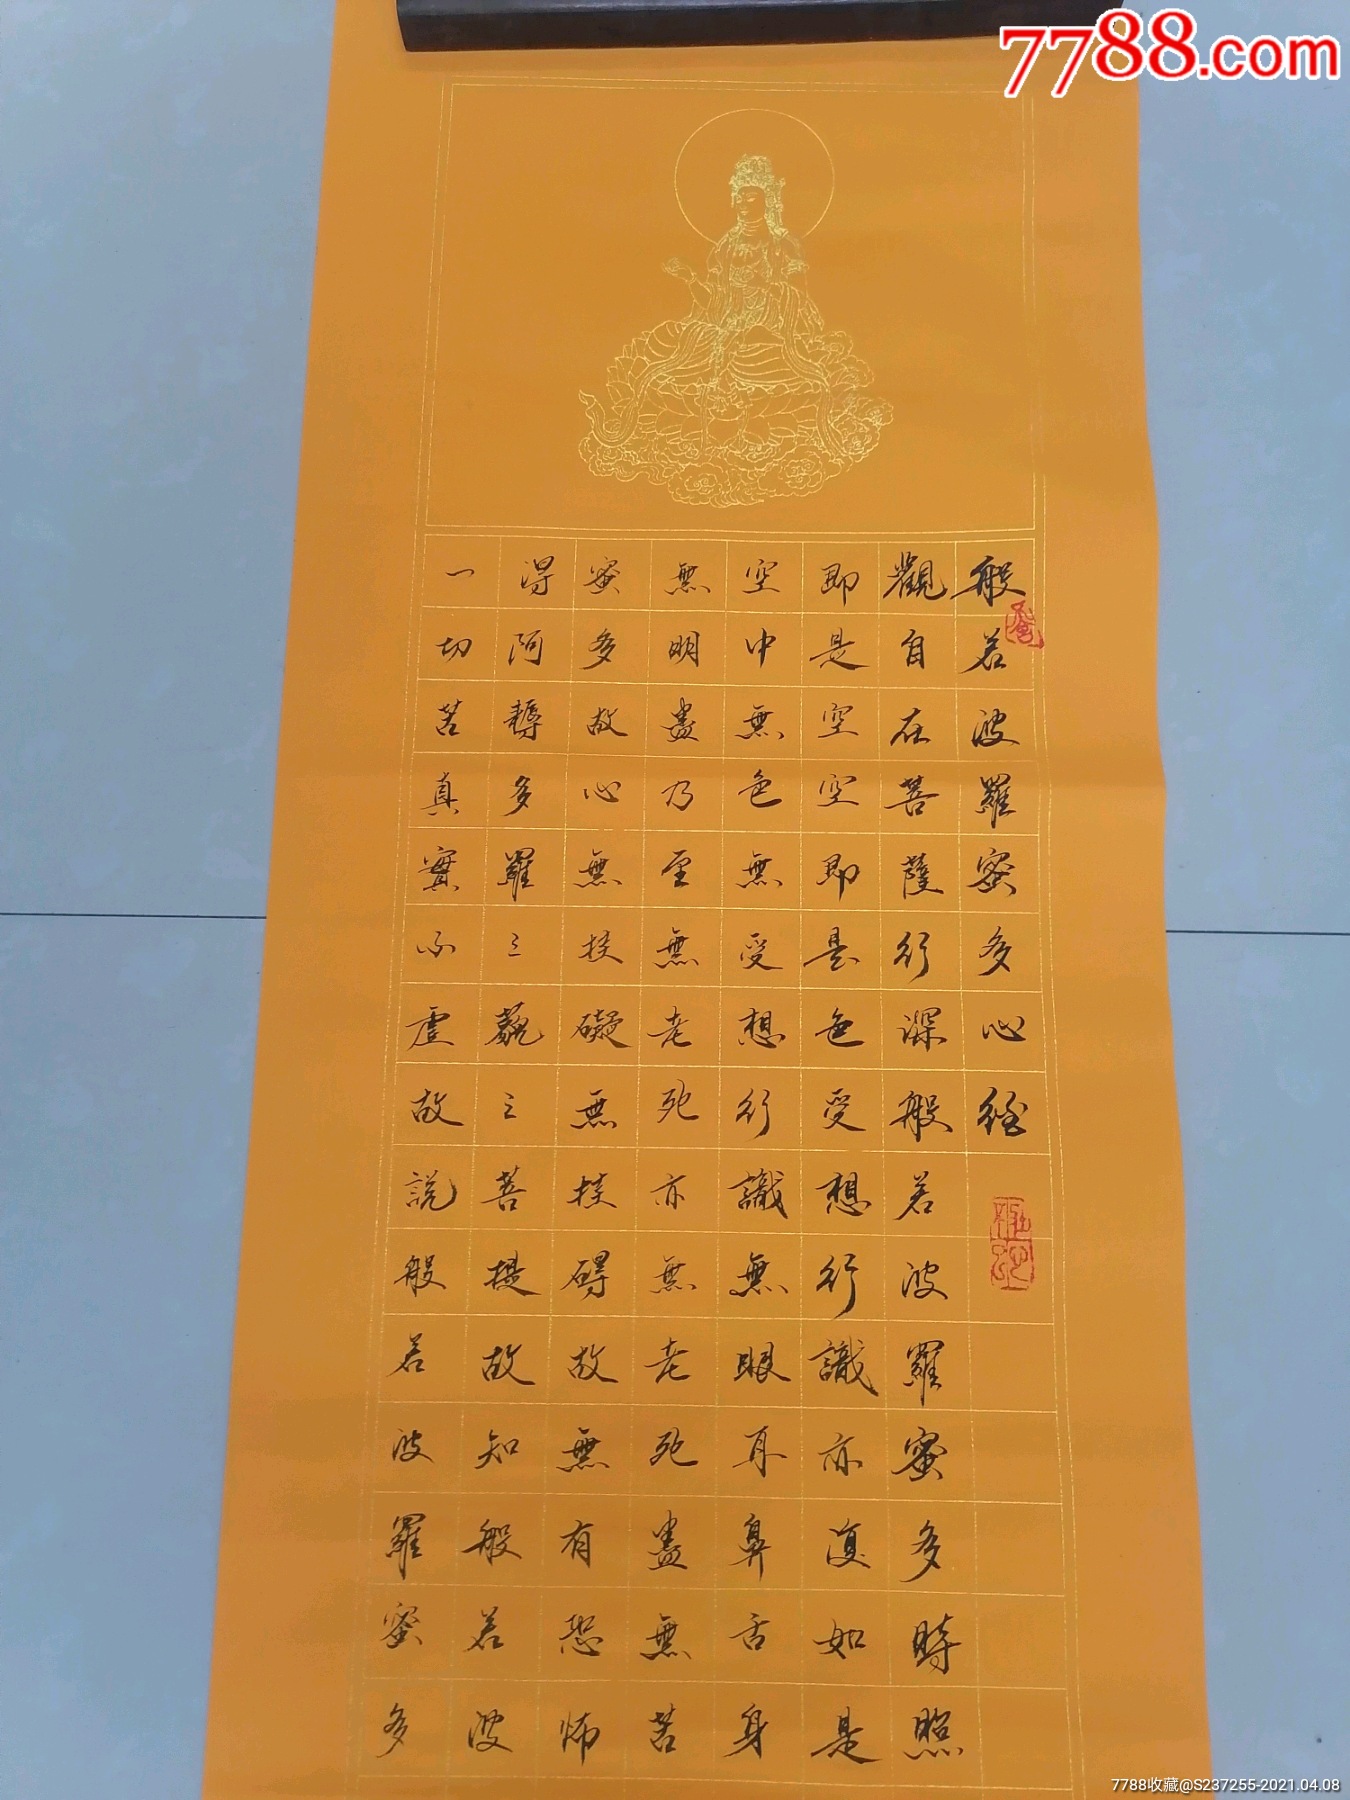 7788.com
般若波羅蜜多心經
觀自在菩薩行深般若波羅蜜多時照
即是空空即是色受想行識亦復如是
空中無色無受想行識無眼耳鼻舌身
無明盡乃至無老死亦無老死盡無苦
蜜多故心無挂礙無挂碍故無有恐怖
得阿耨多羅三藐三菩提故知般若波
一切苦真實不虛故說般若波羅蜜多
7788收藏@S237255-2021.04.08